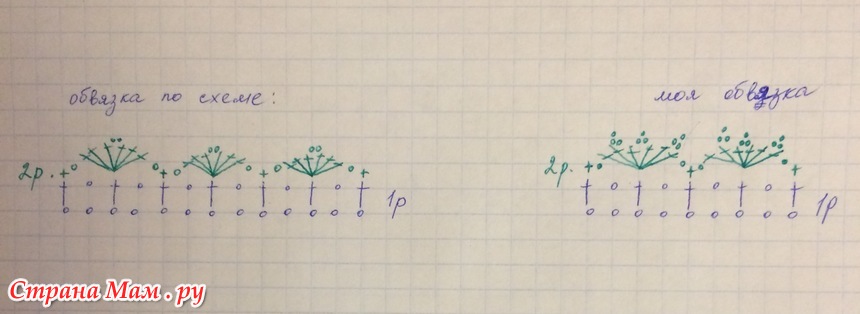 обвязка по схеме:
моя обвязка
2р.
1р
2р.
1р
Страна Мам.ру